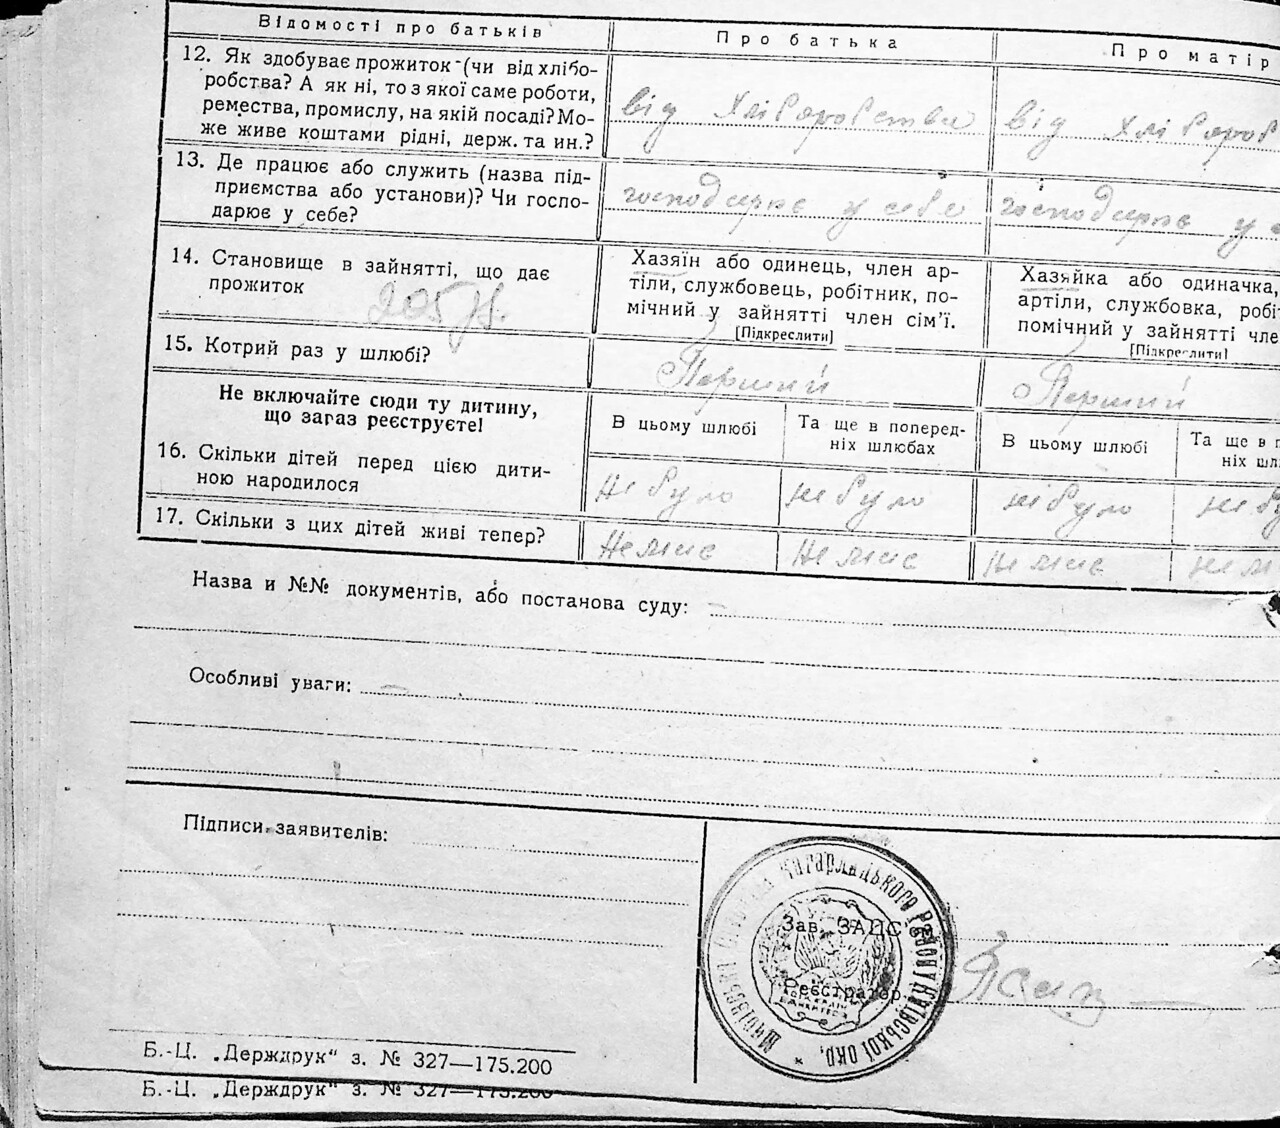 Відомості про батьків
Про батька
Про матір
12. Як здобуває прожиток (чи від хлібо-
робства? А як ні, то з якої саме роботи,
ремества, промислу, на якій посаді? Мо-
же живе коштами рідні, держ. та ин.?
від хліборобства
від хлібороб
13. Де працює або служить (назва під-
приємства або установи)? Чи госпо-
дарює у себе?
господарює у себе
господарює у
14. Становище в зайнятті, що дає
прожиток
Хазяїн або одинець, член ар-
тіли, службовець, робітник, по-
мічний у зайнятті член сім'ї.
[Підкреслити]
Хазяйка або одиначка,
артіли, службовка, робі
помічний у зайнятті чле
[Підкреслити]
15. Котрий раз у шлюбі?
Перший
Перший
Не включайте сюди ту дитину,
що загаз реєструєте!
В цьому шлюбі
Та ще в поперед-
ніх шлюбах
В цьому шлюбі
Та ще в п
ніх шл
16. Скільки дітей перед цією дити-
ною народилося
не було
не було
не було
не бу
17. Скільки з цих дітей живі тепер?
Немає
Немає
Немає
нем
Назва и №№ документів, або постанова суду:
Особливі уваги:
Підписи заявителів:
Сільрада Кагарлицького Району Київської Окр.
Зав. ЗАЦС'ом
Реєстратор
Б.-Ц. „Держдрук" з. № 327—175.200
Б.-Ц. „Держдрук" з. № 327—175.200